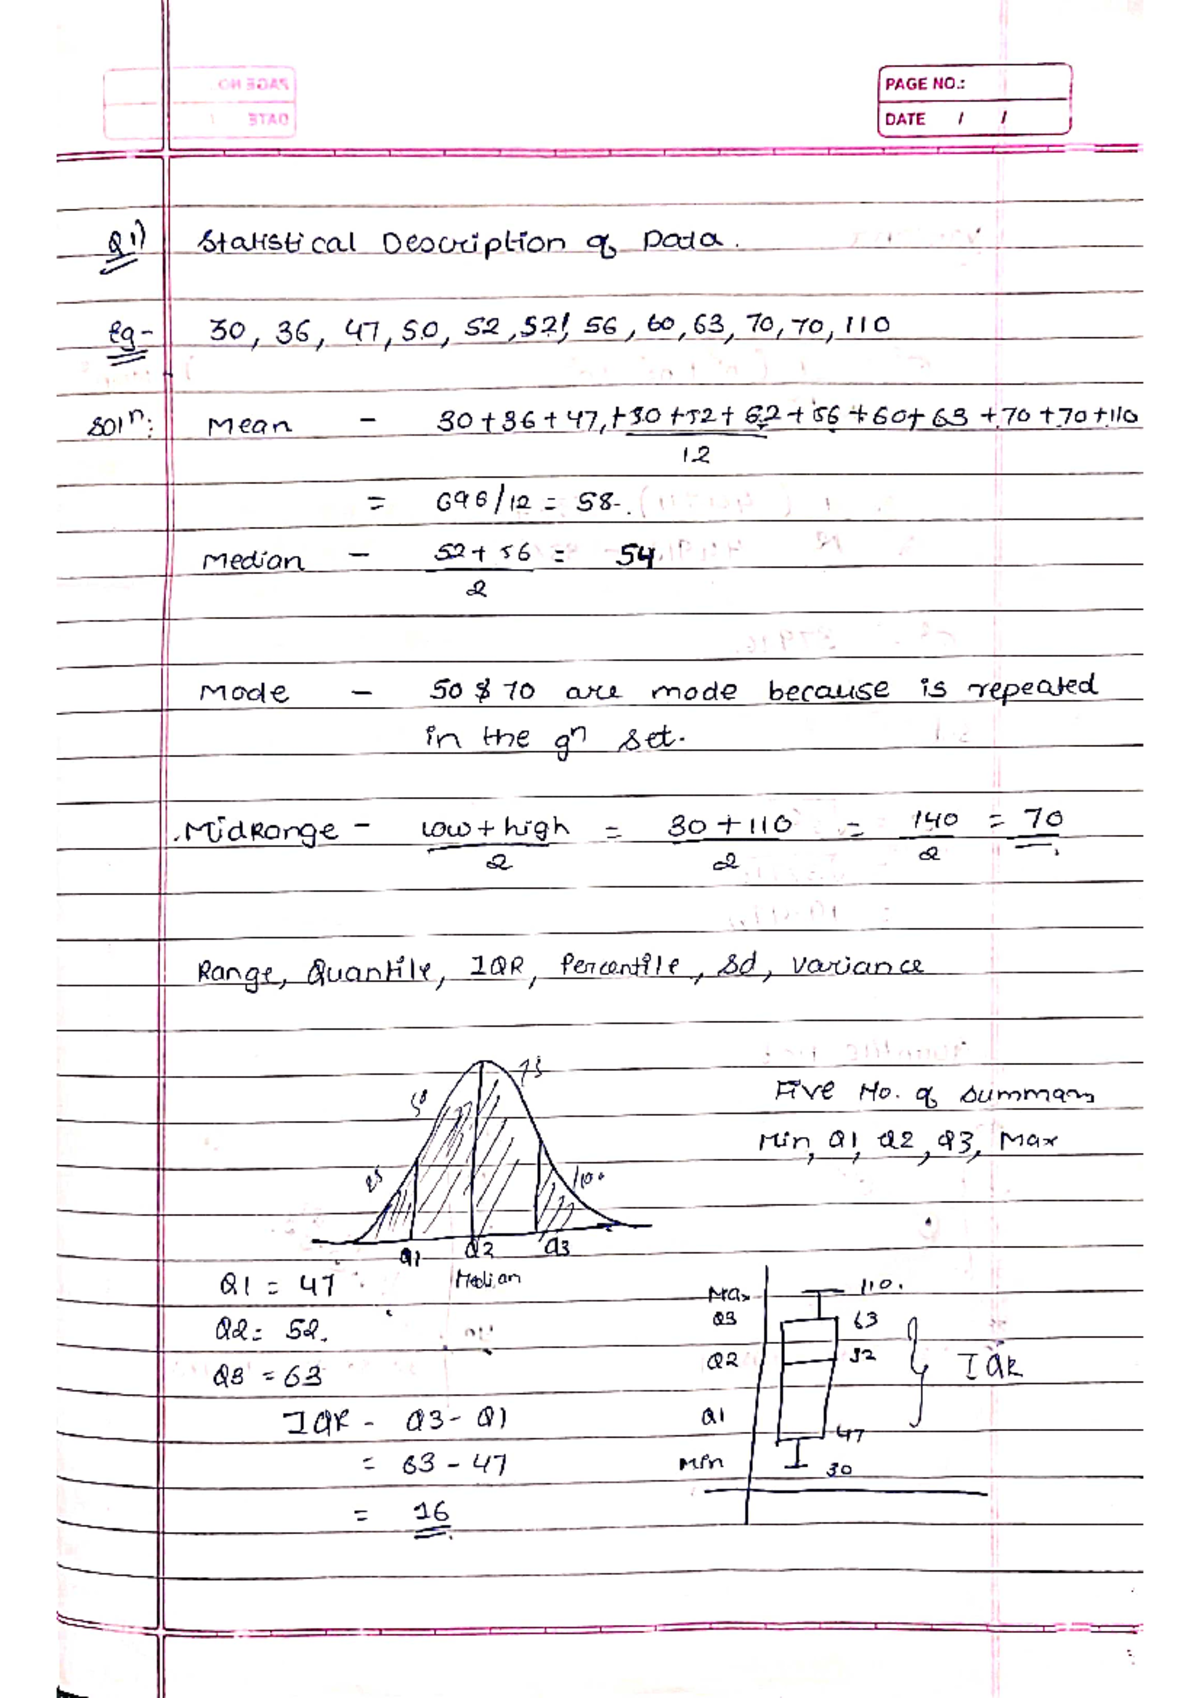 PAGE NO.:
DATE / /
Q1) Statistical Description of Data.
eg- 30, 36, 47, 50, 52, 52, 56, 60, 63, 70, 70, 110
Soln: Mean - 30+36+47+30+52+62+56+60+63+70+70+110
12
= 696/12 = 58.
Median - 52+56 = 54
2
Mode - 50 & 70 are mode because is repeated
in the gn set.
MidRange - low+high = 30+110 = 140 = 70
2 2 2
Range, Quantile, IQR, Percentile, Sd, variance
50 75
25 100
Five No. of summary
Min, Q1, Q2, Q3, Max
Q1 Q2 Q3
Median
Q1 = 47
Q2 = 52.
Q3 = 63
IQR - Q3-Q1
= 63-47
= 16
Max 110.
Q3 63
Q2 52 IQR
Q1 47
Min 30